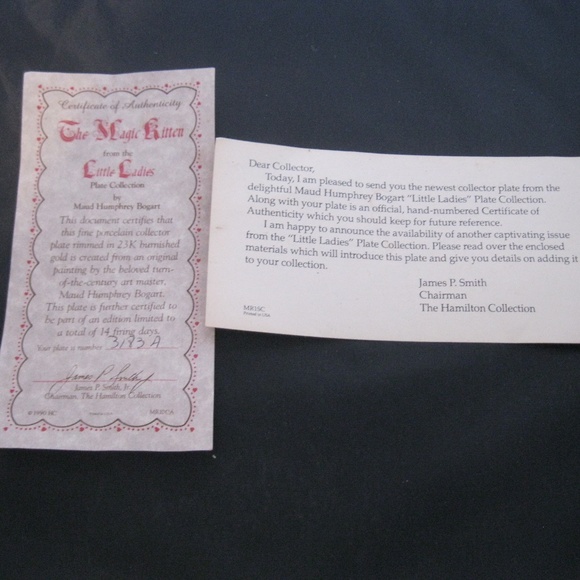 Certificate of Authenticity
The Magic Kitten
from the
Little Ladies
Plate Collection
by
Maud Humphrey Bogart
This document certifies that
this fine porcelain collector
plate rimmed in 23K burnished
gold is created from an original
painting by the beloved turn-
of-the-century art master,
Maud Humphrey Bogart.
This plate is further certified to
be part of an edition limited to
a total of 14 firing days.
Your plate is number 3183A
James P. Smith, Jr.
Chairman, The Hamilton Collection
© 1990 HC
Dear Collector,
Today, I am pleased to send you the newest collector plate from the
delightful Maud Humphrey Bogart "Little Ladies" Plate Collection.
Along with your plate is an official, hand-numbered Certificate of
Authenticity which you should keep for future reference.
I am happy to announce the availability of another captivating issue
from the "Little Ladies" Plate Collection. Please read over the enclosed
materials which will introduce this plate and give you details on adding it
to your collection.
James P. Smith
Chairman
The Hamilton Collection
Printed in USA